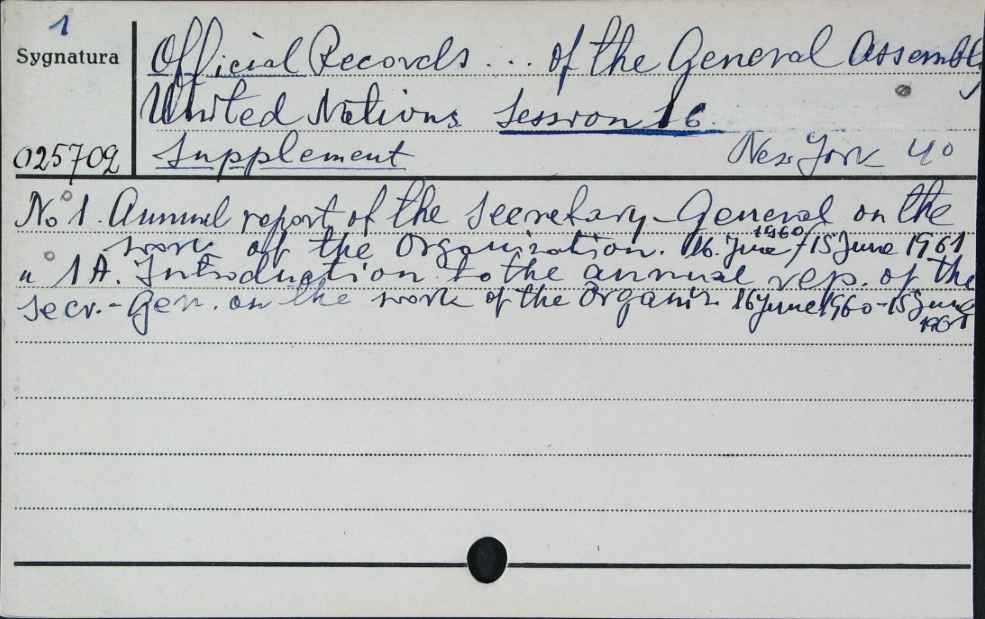 1
Sygnatura
Official Records ... of the General Assembly
United Nations Session 16
025702 Supplement New York 4°
No 1. Annual report of the Secretary-General on the
work of the Organization. 16 June 1960/15 June 1961
n° 1A. Introduction to the annual rep. of the
Secr.-Gen. on the work of the Organiz. 16 June 1960-15 June
1961